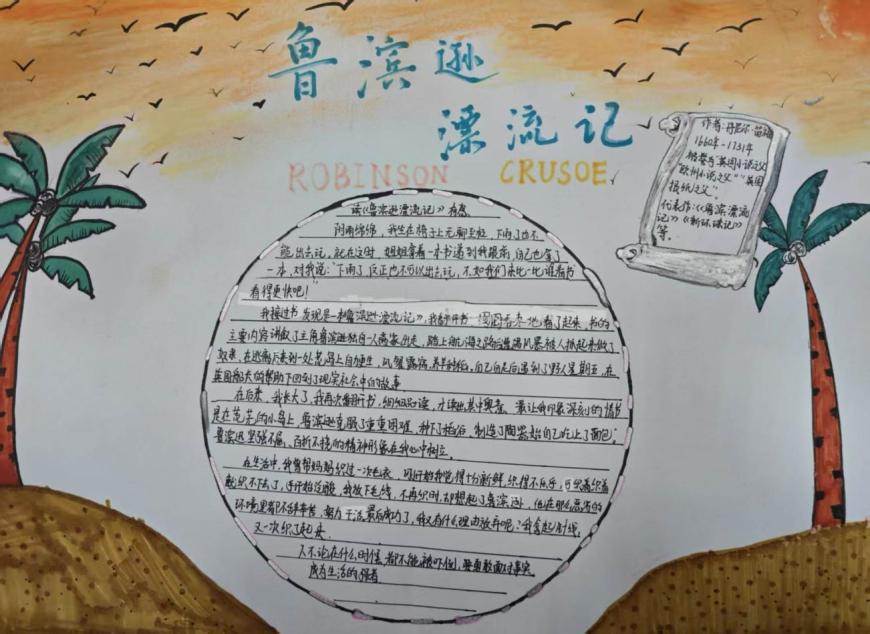 鲁滨逊
漂流记
ROBINSON CRUSOE
作者:丹尼尔·笛福
1660年-1731年
被誉为"英国小说之父"
"欧洲小说之父""英国
报纸之父"。
代表作:《鲁滨漂流
记》《新环球记》
等。
读《鲁滨逊漂流记》有感
阴雨绵绵,我坐在椅子上无聊至极,下雨了也不
能出去玩,就在这时,姐姐拿着一本书递到我跟前,自己也拿了
一本,对我说:"下雨了反正也不可以出去玩,不如我们来比一比谁看书
看得更快吧!
我接过书发现是一本鲁滨逊漂流记》,我翻开书 津津有味地看了起来,书的
主要内容讲叙了主角鲁滨逊独自一人离家出走,踏上航海之路遭遇风暴被人抓起来做了
奴隶,在逃离后来到一处荒岛上自力更生,风餐露宿,养羊种稻,自己自足后遇到了野人星期五,在
英国船夫的帮助下回到了现实社会中的故事
在后来,我长大了,我再次翻开书,细细品读,才读出其中奥秘。最让我印象深刻的情节
是在荒芜的小岛上,鲁滨逊克服了重重困难,种下了稻谷,制造了陶器给自己吃上了面包;
鲁滨逊坚强不屈、百折不挠的精神形象在我心中树立。
在生活中,我曾帮妈妈织过一次毛衣,刚开始我觉得十分新鲜,织得不亦乐乎,可织着织着
就织不下去了,手开始泛酸,我放下毛线,不再织时,却想起了鲁滨逊,他在那么恶劣的
环境里都不辞辛苦,努力干活最后成功了,我又有什么理由放弃呢?我拿起了针线,
又一次织了起来
人不论在什么时候,都不能被吓倒,要勇敢面对事实
成为生活的强者